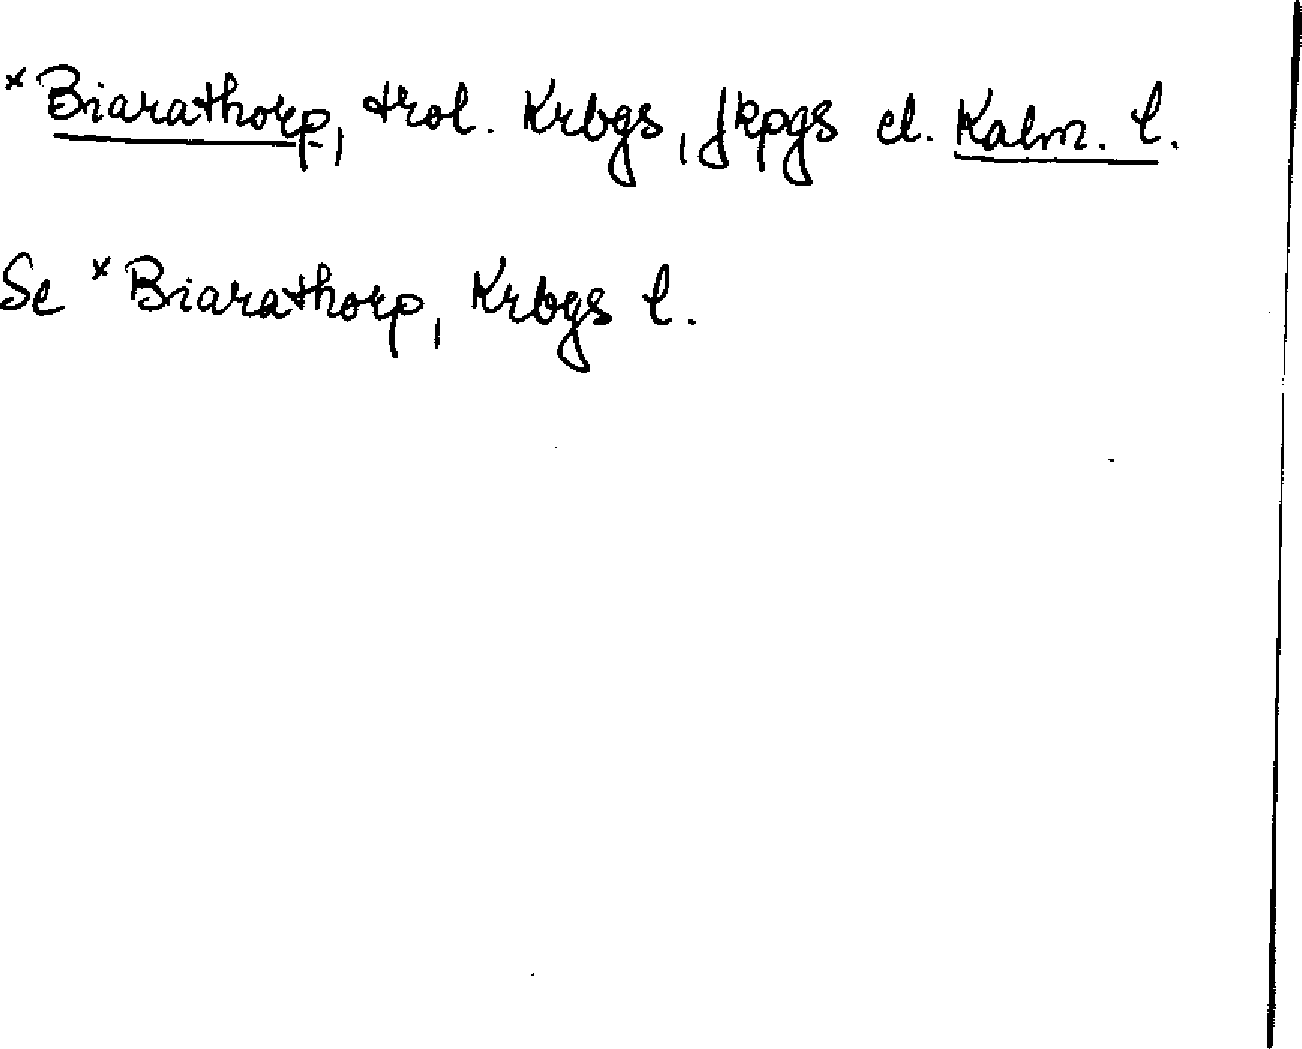 *Biarathorp, trol. Krbgs, Jkpgs el. Kalm. l.
Se *Biarathorp, Krbgs l.